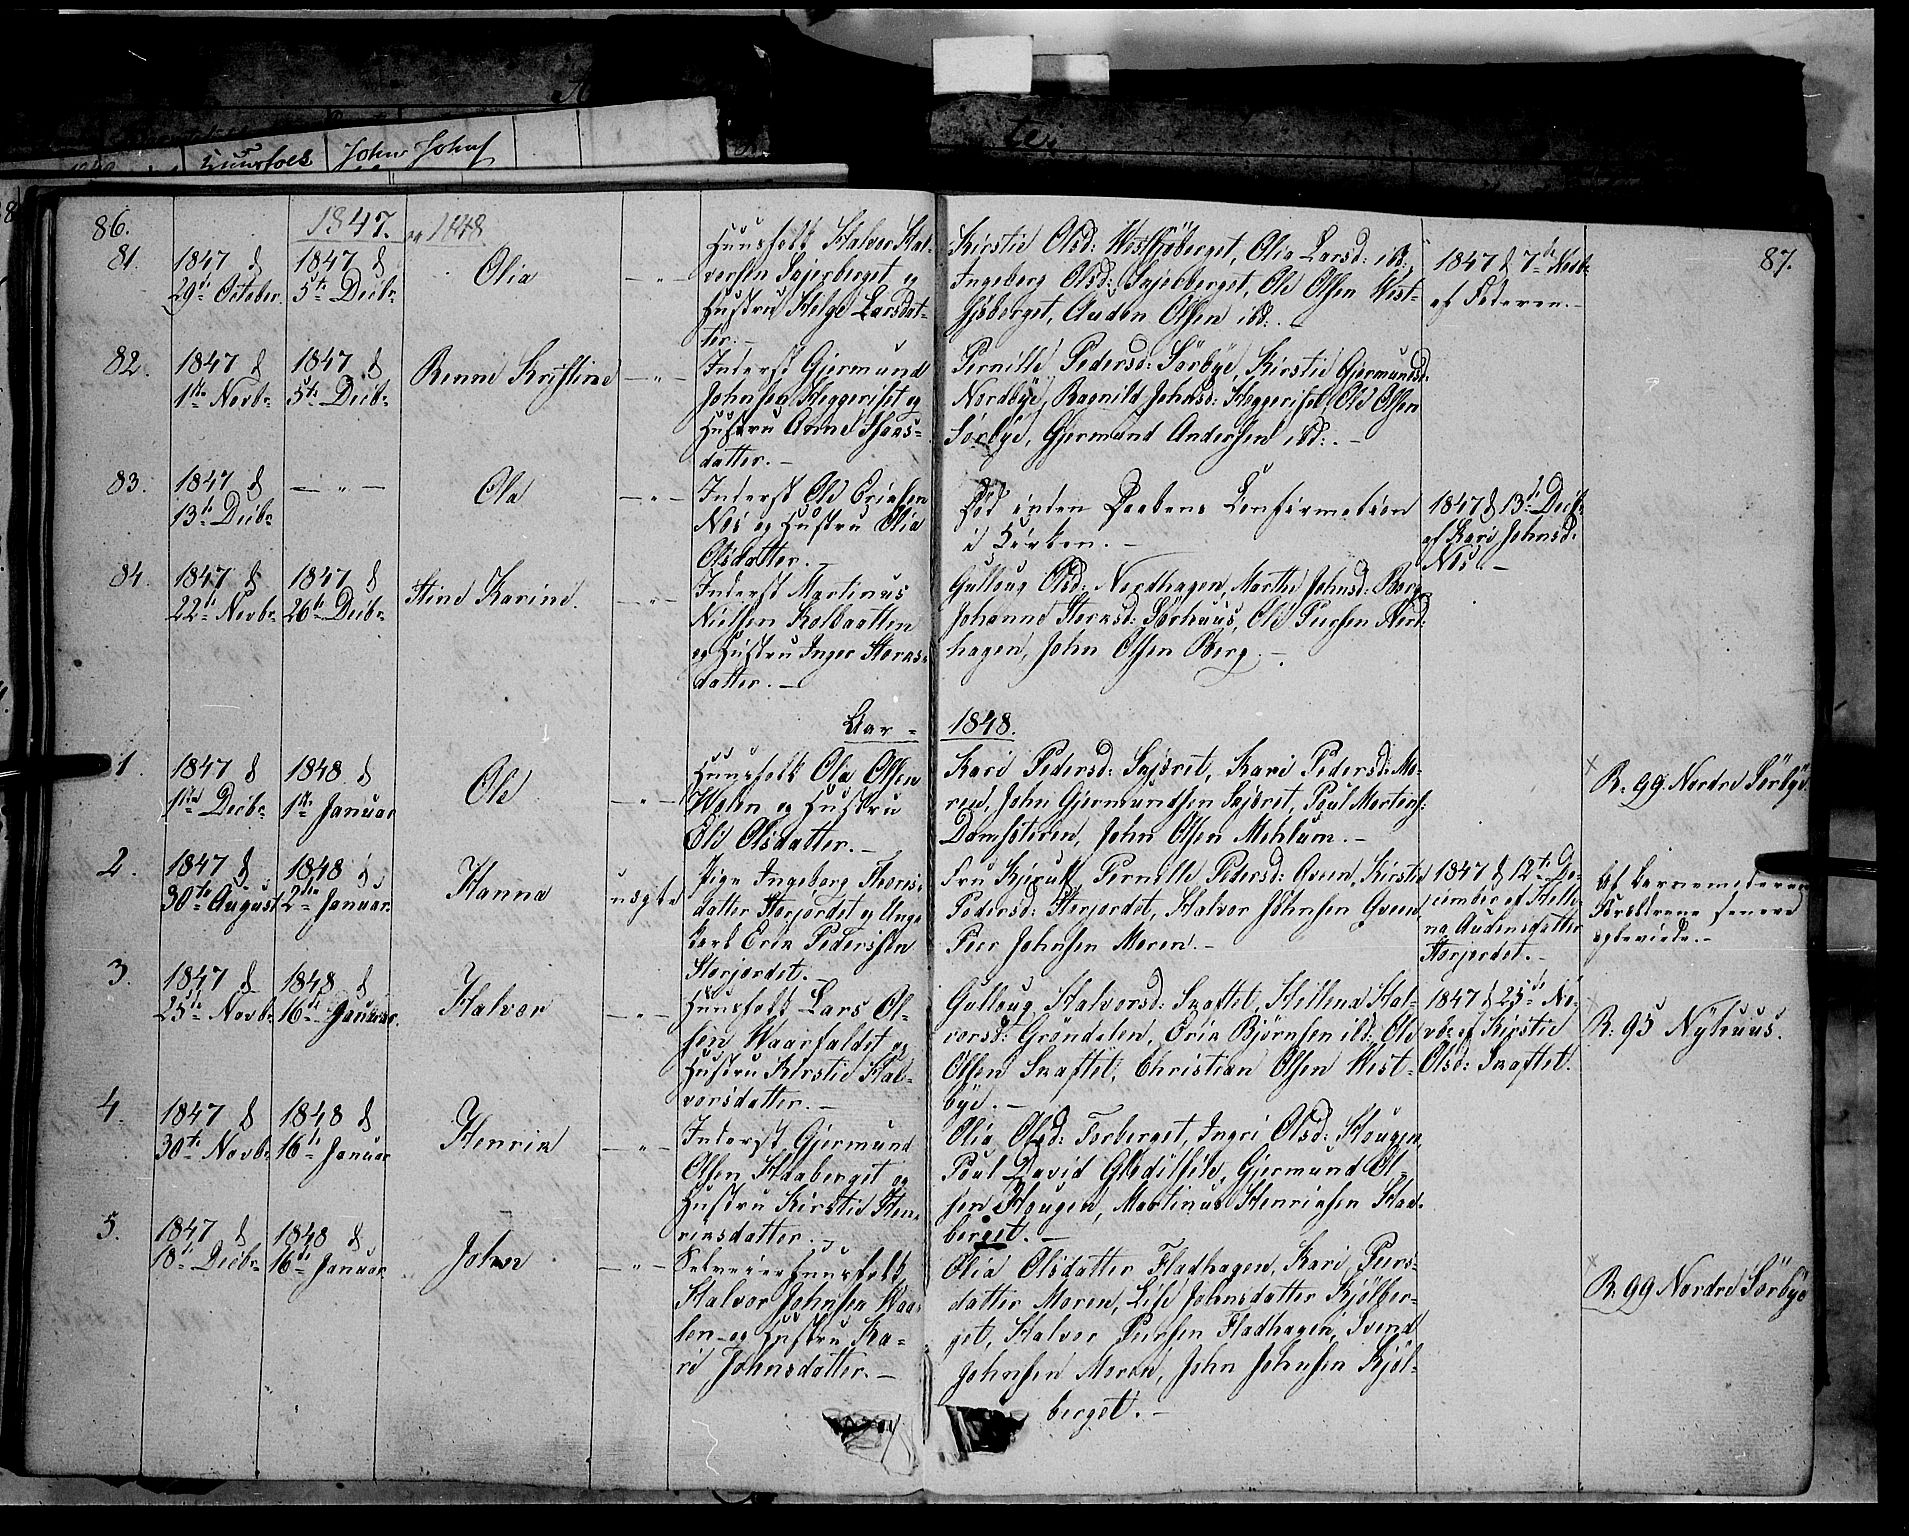 Huusfolk
John Johns
86.
1847.
og 1848
87.
81.
1847 d
29de October
1847 d
5te Decbr
Olia
— " —
Huusfolk Halvor Hal-
versen Skjerberget og
Hustru Helge Larsdat-
ter. —
Kirstie Olsd: Westsjöberget, Olia Larsd: ibd,
Ingeborg Olsd: Skjerberget, Ole Olsen West-
sjöberget, Auden Olsen ibd. —
1847 d 7de
af Faderen. —
82.
1847 d
1ste Novbr
1847 d
5te Decbr
Kristine
— " —
Inderst Gjermund
Johnsen Heggeriset og
Hustru Anne
datter. —
Pernille Pedersd: Sörbye, Kirstie Gjermundsd:
Nordbye, Ragnild Johnsd: Heggeriset, Ole Olsen
Sörbye, Gjermund Andersen ibd: —
83.
1847 d
13de Decbr
— " —
Ole
— " —
Inderst Ole Eriksen
Næs og Hustru Olia
Olsdatter. —
Död inden Daabens Confirmation
i Kirken. —
1847 d 13de Decbr
af Kari Johnsd:
Næs —
84.
1847 d
22de Novbr
1847 d
26de Decbr
Stine Karine.
— " —
Inderst Martinus
Nielsen Kolbaatten
og Hustru Inger
datter. —
Gulloug Olsd: Nordhagen, Marthe Johnsd: Berg,
Johanne Sörhuus, Ole Persen Nord-
hagen, John Olsen Berg. —
Aar -
1848.
1.
1847 d
1ste Decbr
1848 d
1ste Januar
Ole
— " —
Huusfolk Ole Olsen
og Hustru
Eli Olsdatter. —
Kari Pedersd: Skjöret, Kari Pedersd: Mo-
ren, John Gjermundsen Skjöret, Paul Mortens:
Damsæteren, John Olsen Mehlum. —
R: 99 Nordre Sörbye.
2.
1847 d
30te August
1848 d
2den Januar.
Hanna
uægte
Pige Ingeborg Thores-
datter Storjordet og Unge-
karl Erik Pedersen
Storjordet. —
Fru Kjerulf, Pernille Pedersd: Kirstie
Pedersd: Storjordet, Halvor Johnsen
Peer Johnsen Moren. —
1847 d 12te De-
cember af Helle-
na Audensdatter
Storjordet. —
Af Barnemoderen
Forældrene senere
egteviede. —
3.
1847 d
25de Novbr
1848 d
16de Januar.
Halvor
— " —
Huusfolk Lars Ol-
sen Waarfaldet og
Hustru Kirstie Hal-
vorsdatter. —
Gulloug Halvorsd: Skaftet, Hellena Hal-
vorsd: Gröndalen, Erik Björnsen ibd: Ole
Olsen Skaftet, Christian Olsen West-
bye. —
1847 d 25de No-
vbr af Kirstie
Olsd: Skaftet.
R: 95 Nyhuus.
4.
1847 d
30te Novbr
1848 d
16de Januar
Henrik
— " —
Inderst Gjermund
Olsen Staaberget og
Hustru Kirstie Hen-
riksdatter. —
Olia Olsd: Forberget, Ingri Olsd: Hougen,
Poul David Gjermund Ol-
sen Hougen, Martinus Henriksen Staa-
berget. —
5.
1847 d
18de Decbr
1848 d
16de Januar
John
— " —
Selveierhuusfolk
Halvor Johnsen
og Hustru Ka-
ri Johnsdatter. —
Olia Olsdatter Fladhagen, Kari Peers-
datter Moren, Lise Johnsdatter Kjölber-
get, Halvor Peersen Fladhagen, Svend
Johnsen Moren, John Johnsen Kjöl-
berget. —
R: 99 Nordre Sörbye